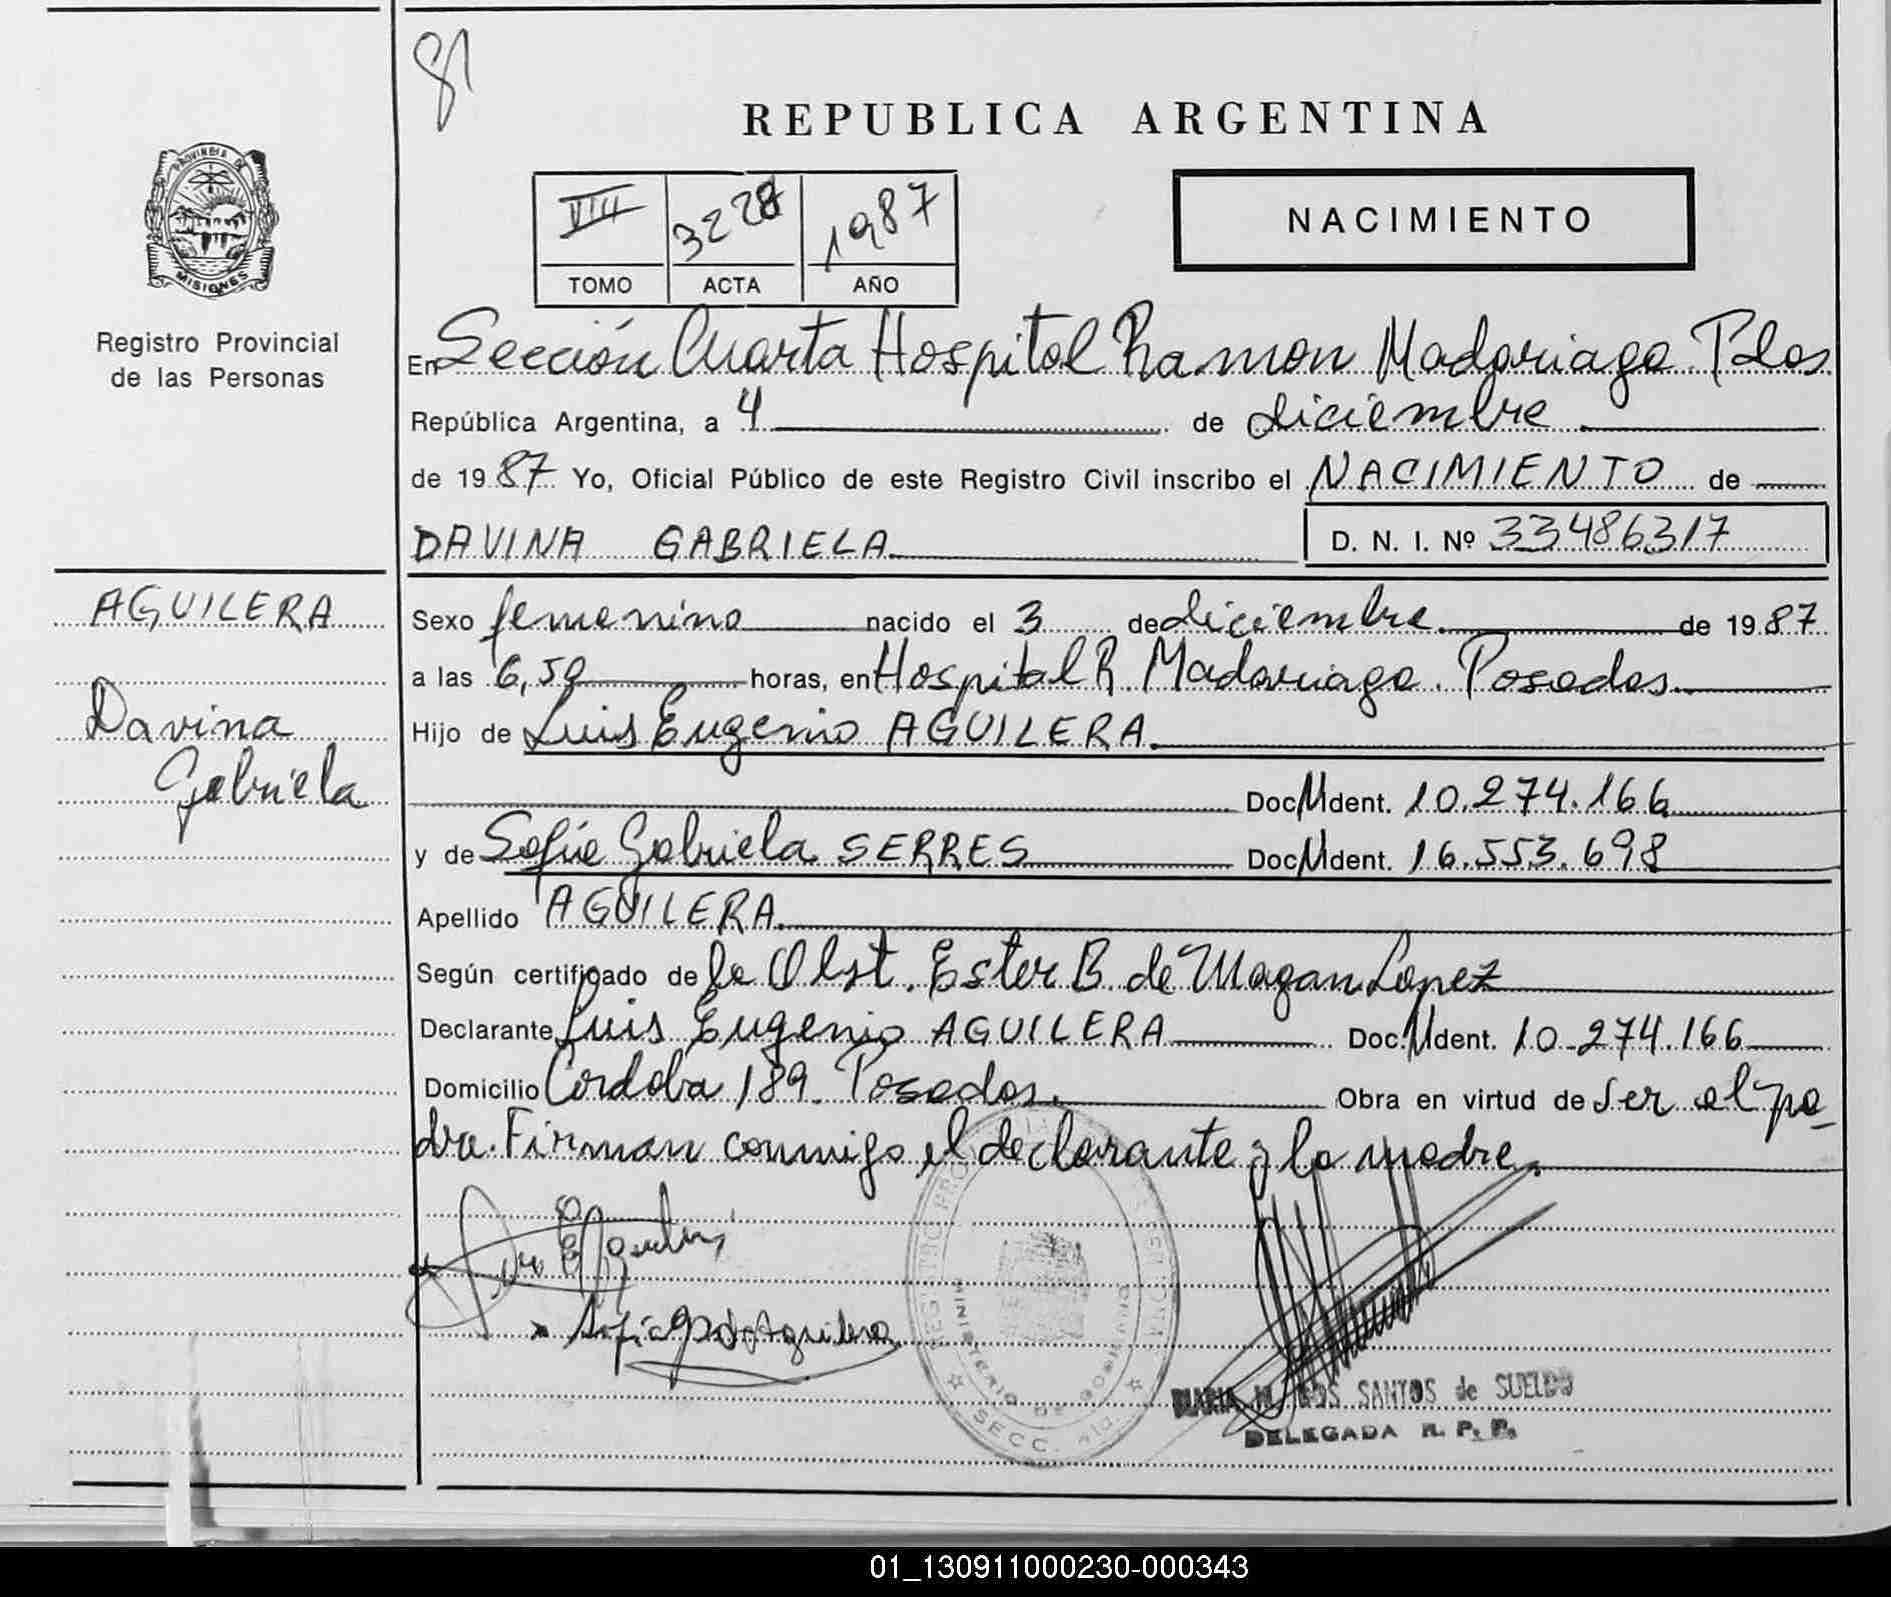 81
REPUBLICA ARGENTINA
PROVINCIA DE
MISIONES
Registro Provincial
de las Personas
VIII 3228 1987
TOMO ACTA AÑO
NACIMIENTO
En Sección Cuarta Hospital Ramon Madariaga. Pdas
República Argentina, a 4 de diciembre
de 1987 Yo, Oficial Público de este Registro Civil inscribo el NACIMIENTO de
DAVINA GABRIELA D. N. I. Nº 33486317
AGUILERA
Davina
Gabriela
Sexo femenino nacido el 3 de diciembre de 1987
a las 6,50 horas, en Hospital R. Madariaga. Posadas.
Hijo de Luis Eugenio AGUILERA.
Doc. Ident. 10.274.166
y de Sofía Gabriela SERRES Doc. Ident. 16.553.698
Apellido AGUILERA.
Según certificado de la Obst. Ester B de Magan Lopez
Declarante Luis Eugenio AGUILERA Doc. Ident. 10.274.166
Domicilio Cordoba 189. Posadas. Obra en virtud de ser el pa-
dre. Firman conmigo el declarante y la madre.
REGISTRO
MINISTERIO DE GOBIERNO
SECC.
MARIA M. DOS SANTOS de SUELDO
DELEGADA R. P. P.
01_130911000230-000343